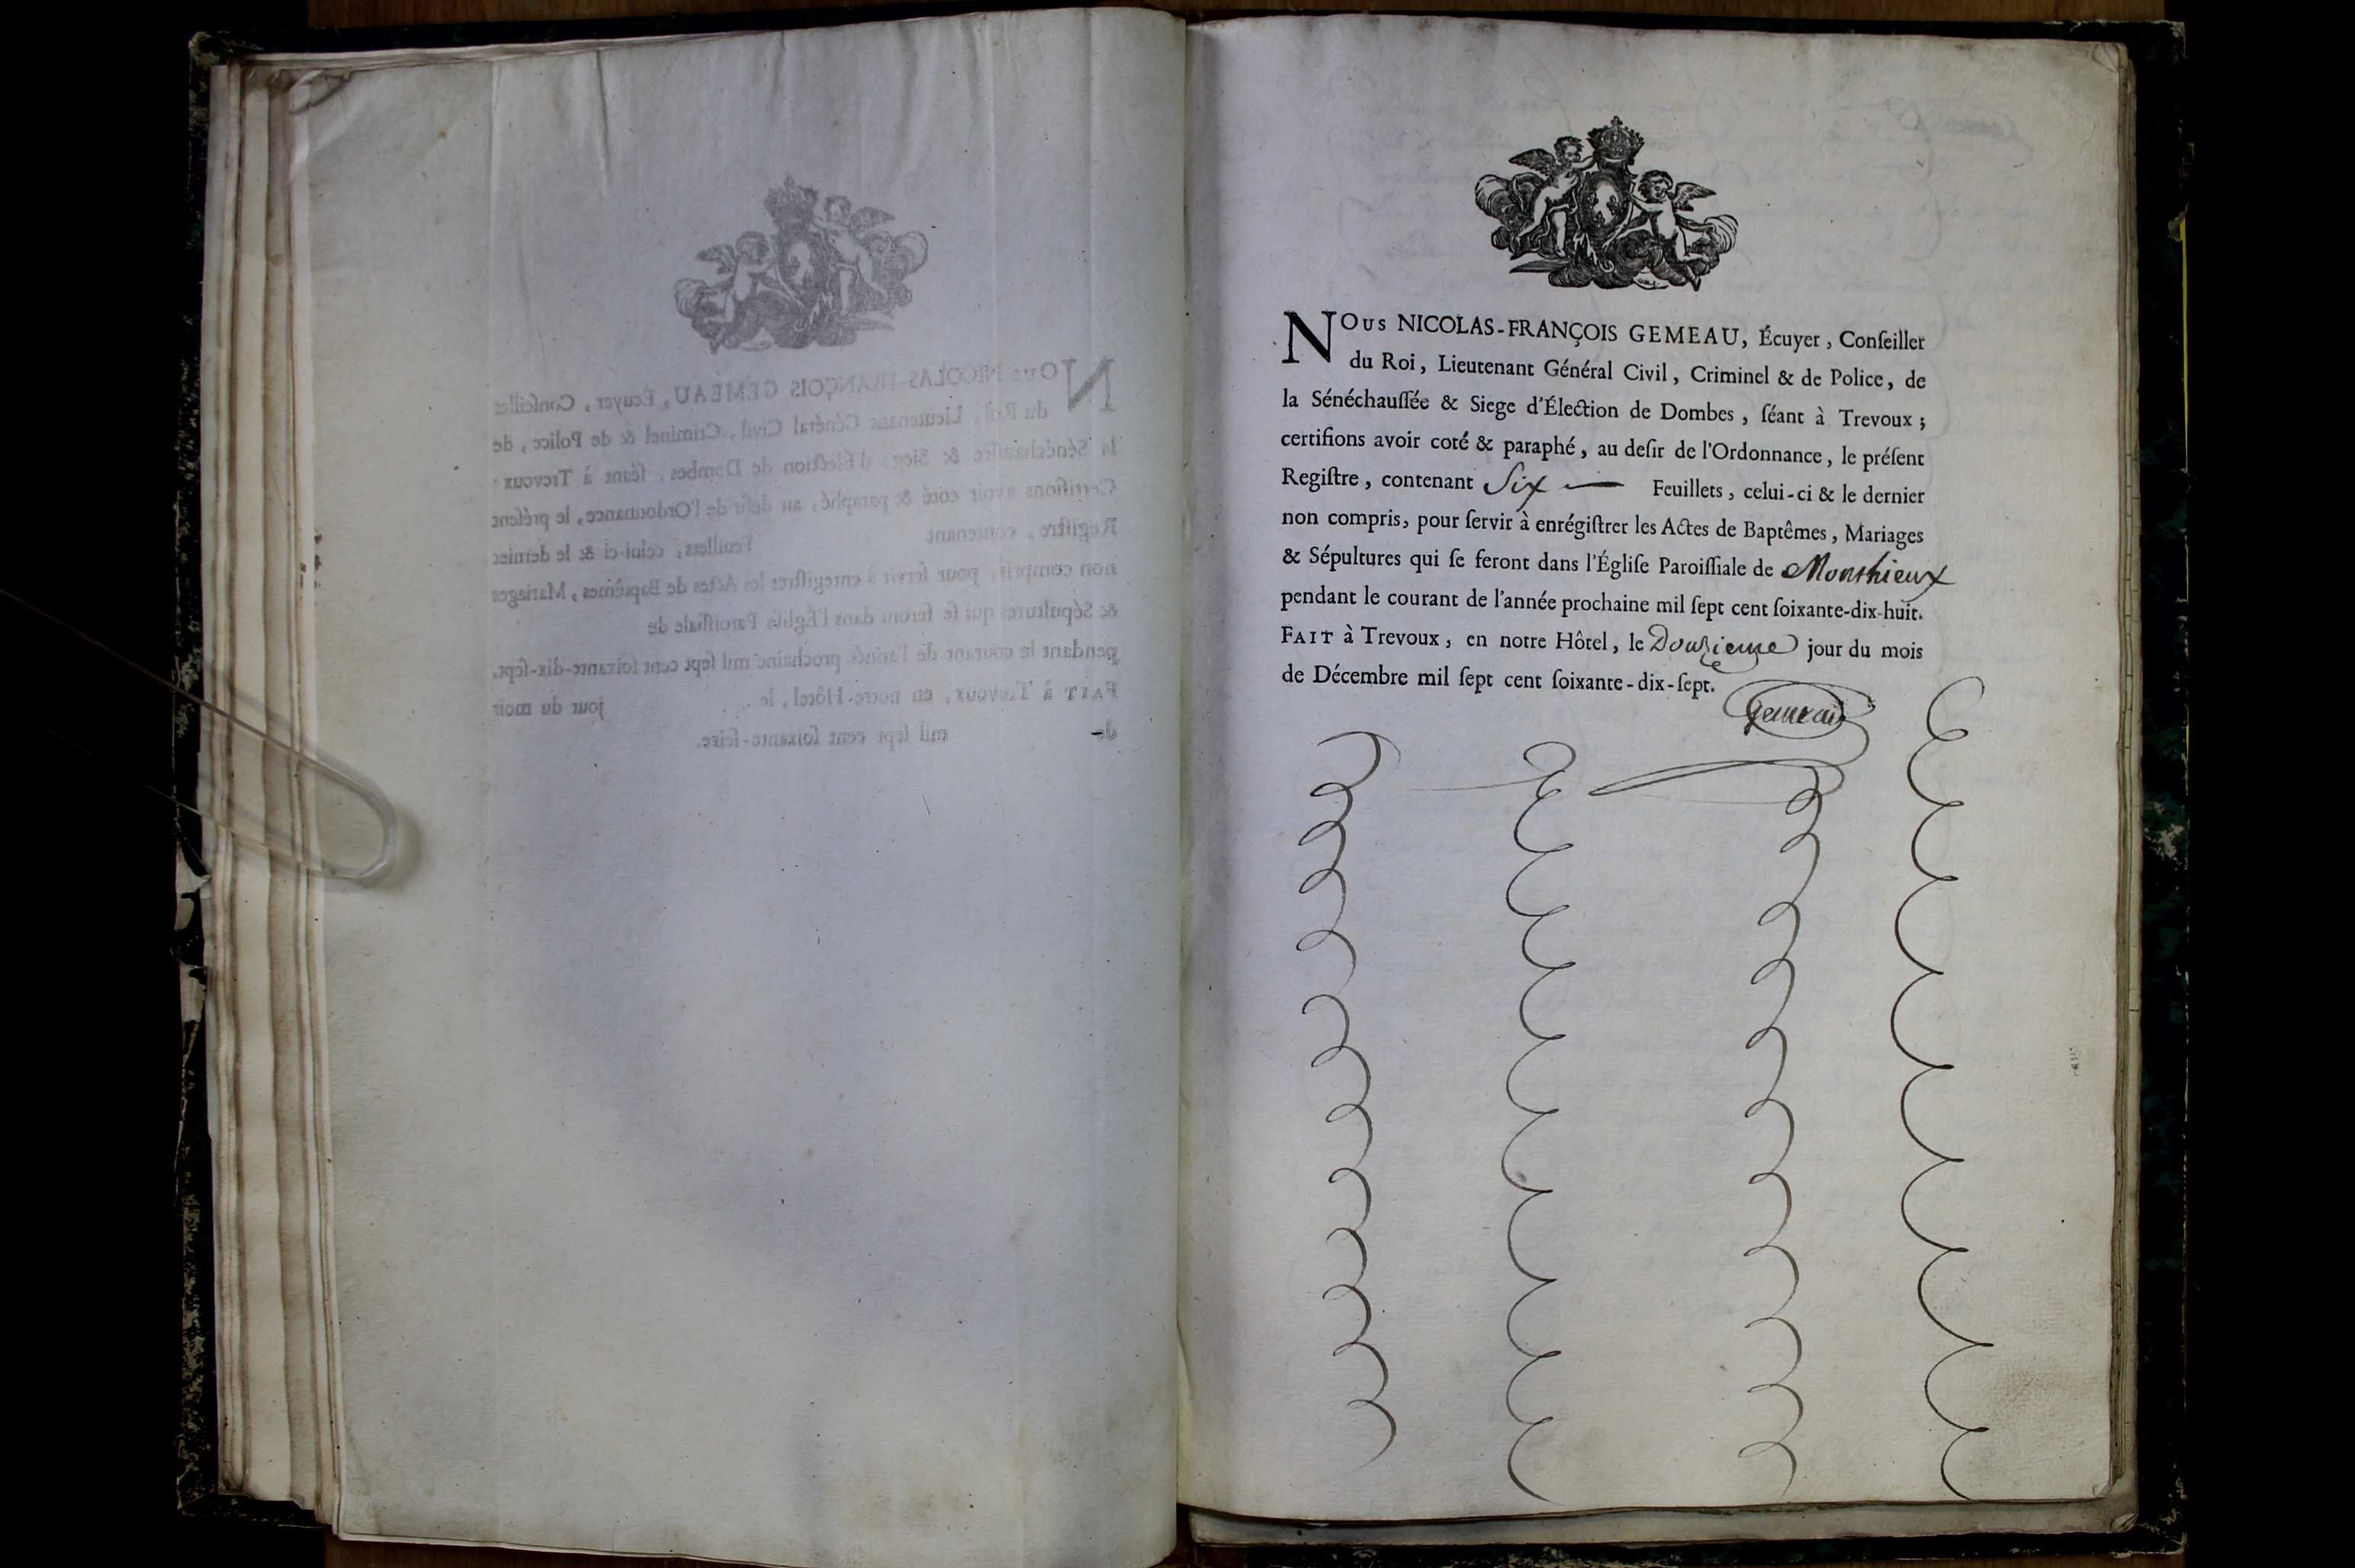 NOUS NICOLAS-FRANÇOIS GEMEAU, Écuyer, Conſeiller
du Roi, Lieutenant Général Civil, Criminel & de Police, de
la Sénéchauſſée & Siege d'Élection de Dombes, ſéant à Trevoux;
certifions avoir coté & paraphé, au deſir de l'Ordonnance, le préſent
Regiſtre, contenant Six — Feuillets, celui-ci & le dernier
non compris, pour ſervir à enrégiſtrer les Actes de Baptêmes, Mariages
& Sépultures qui ſe feront dans l'Égliſe Paroiſſiale de Monthieux
pendant le courant de l'année prochaine mil ſept cent ſoixante-dix-huit.
FAIT à Trevoux, en notre Hôtel, le Douzieme jour du mois
de Décembre mil ſept cent ſoixante-dix-ſept.
Gemeau